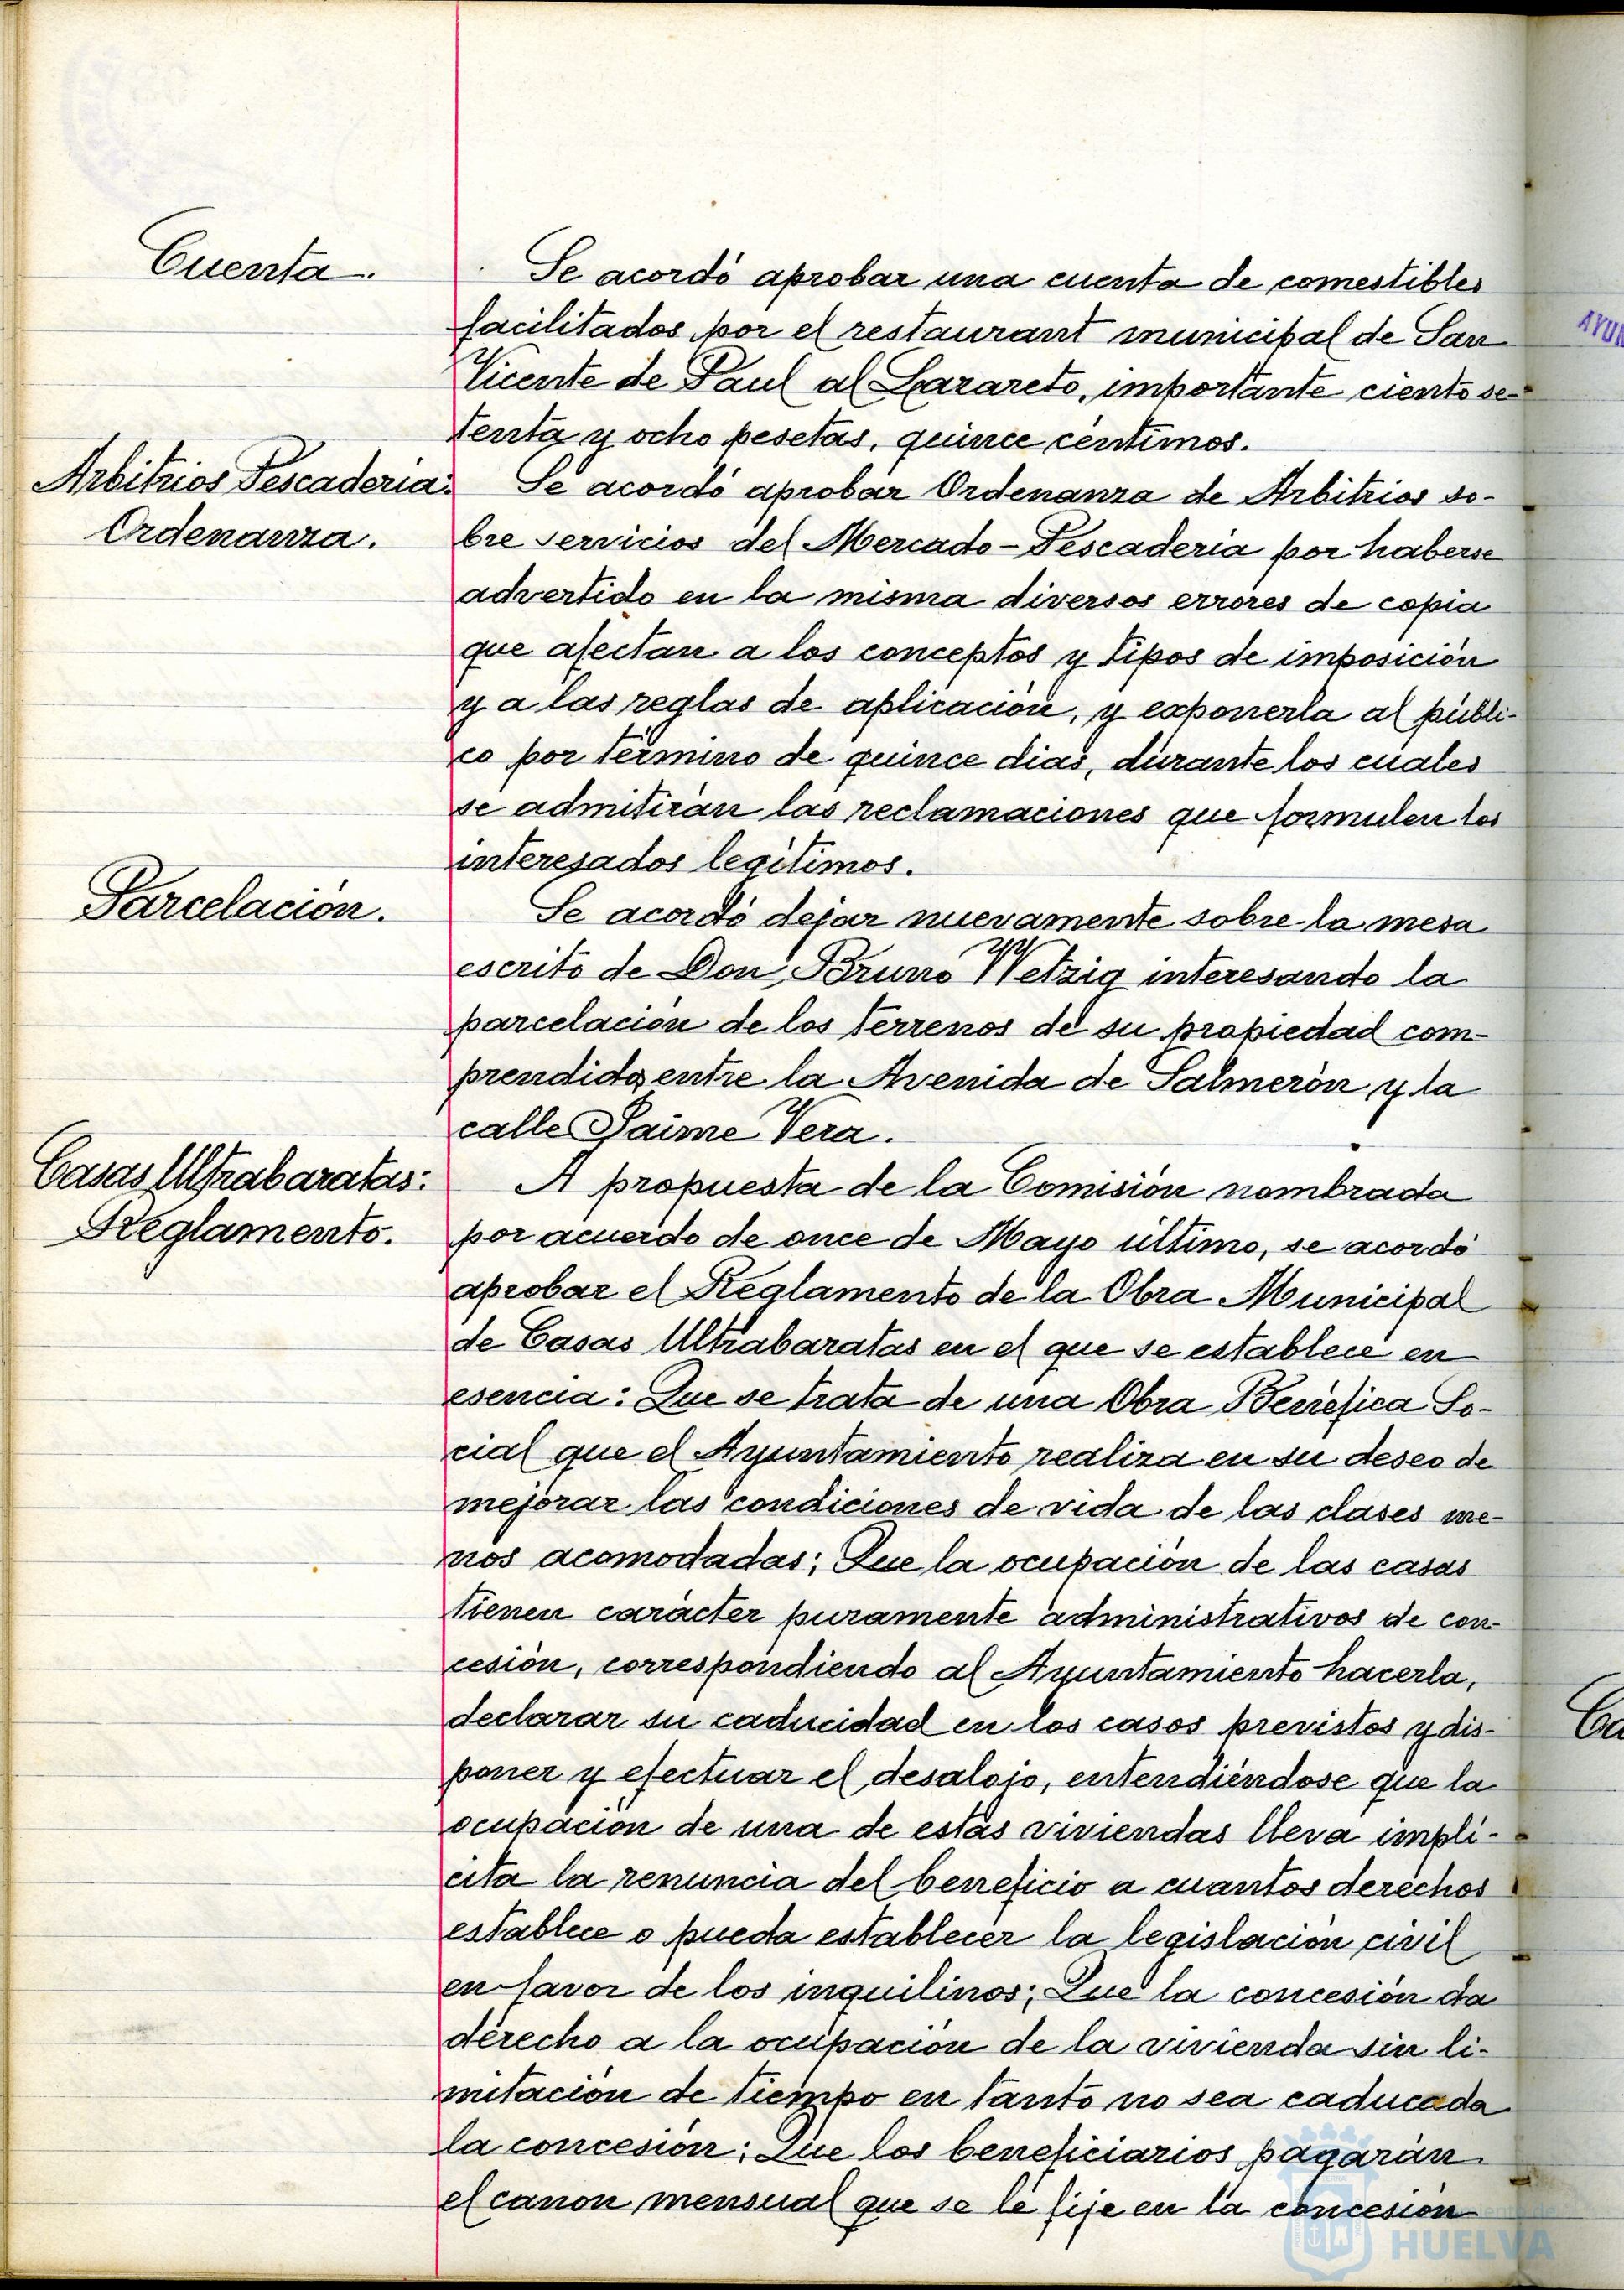 Cuenta.
Se acordó aprobar una cuenta de comestibles
facilitados por el restaurant municipal de San
Vicente de Paul al Lazareto, importante ciento se-
tenta y ocho pesetas, quince céntimos.
Arbitrios Pescaderia:
Ordenanza.
Se acordó aprobar Ordenanza de Arbitrios so-
bre servicios del Mercado-Pescaderia por haberse
advertido en la misma diversos errores de copia
que afectan a los conceptos y tipos de imposición
y a las reglas de aplicación, y exponerla al públi-
co por término de quince dias, durante los cuales
se admitirán las reclamaciones que formulen los
interesados legítimos.
Parcelación.
Se acordó dejar nuevamente sobre la mesa
escrito de Don Bruno Wetzig interesando la
parcelación de los terrenos de su propiedad com-
prendidos entre la Avenida de Salmerón y la
calle Jaime Vera.
Casas Ultrabaratas:
Reglamento.
A propuesta de la Comisión nombrada
por acuerdo de once de Mayo último, se acordó
aprobar el Reglamento de la Obra Municipal
de Casas Ultrabaratas en el que se establece en
esencia: Que se trata de una Obra Benéfica So-
cial que el Ayuntamiento realiza en su deseo de
mejorar las condiciones de vida de las clases me-
nos acomodadas; Que la ocupación de las casas
tienen carácter puramente administrativos de con-
cesión, correspondiendo al Ayuntamiento hacerla,
declarar su caducidad en los casos previstos y dis-
poner y efectuar el desalojo, entendiéndose que la
ocupación de una de estas viviendas lleva implí-
cita la renuncia del beneficio a cuantos derechos
establece o pueda establecer la legislación civil
en favor de los inquilinos; Que la concesión da
derecho a la ocupación de la vivienda sin li-
mitación de tiempo en tanto no sea caducada
la concesión; Que los beneficiarios pagarán
el canon mensual que se le fije en la concesión
HUELVA